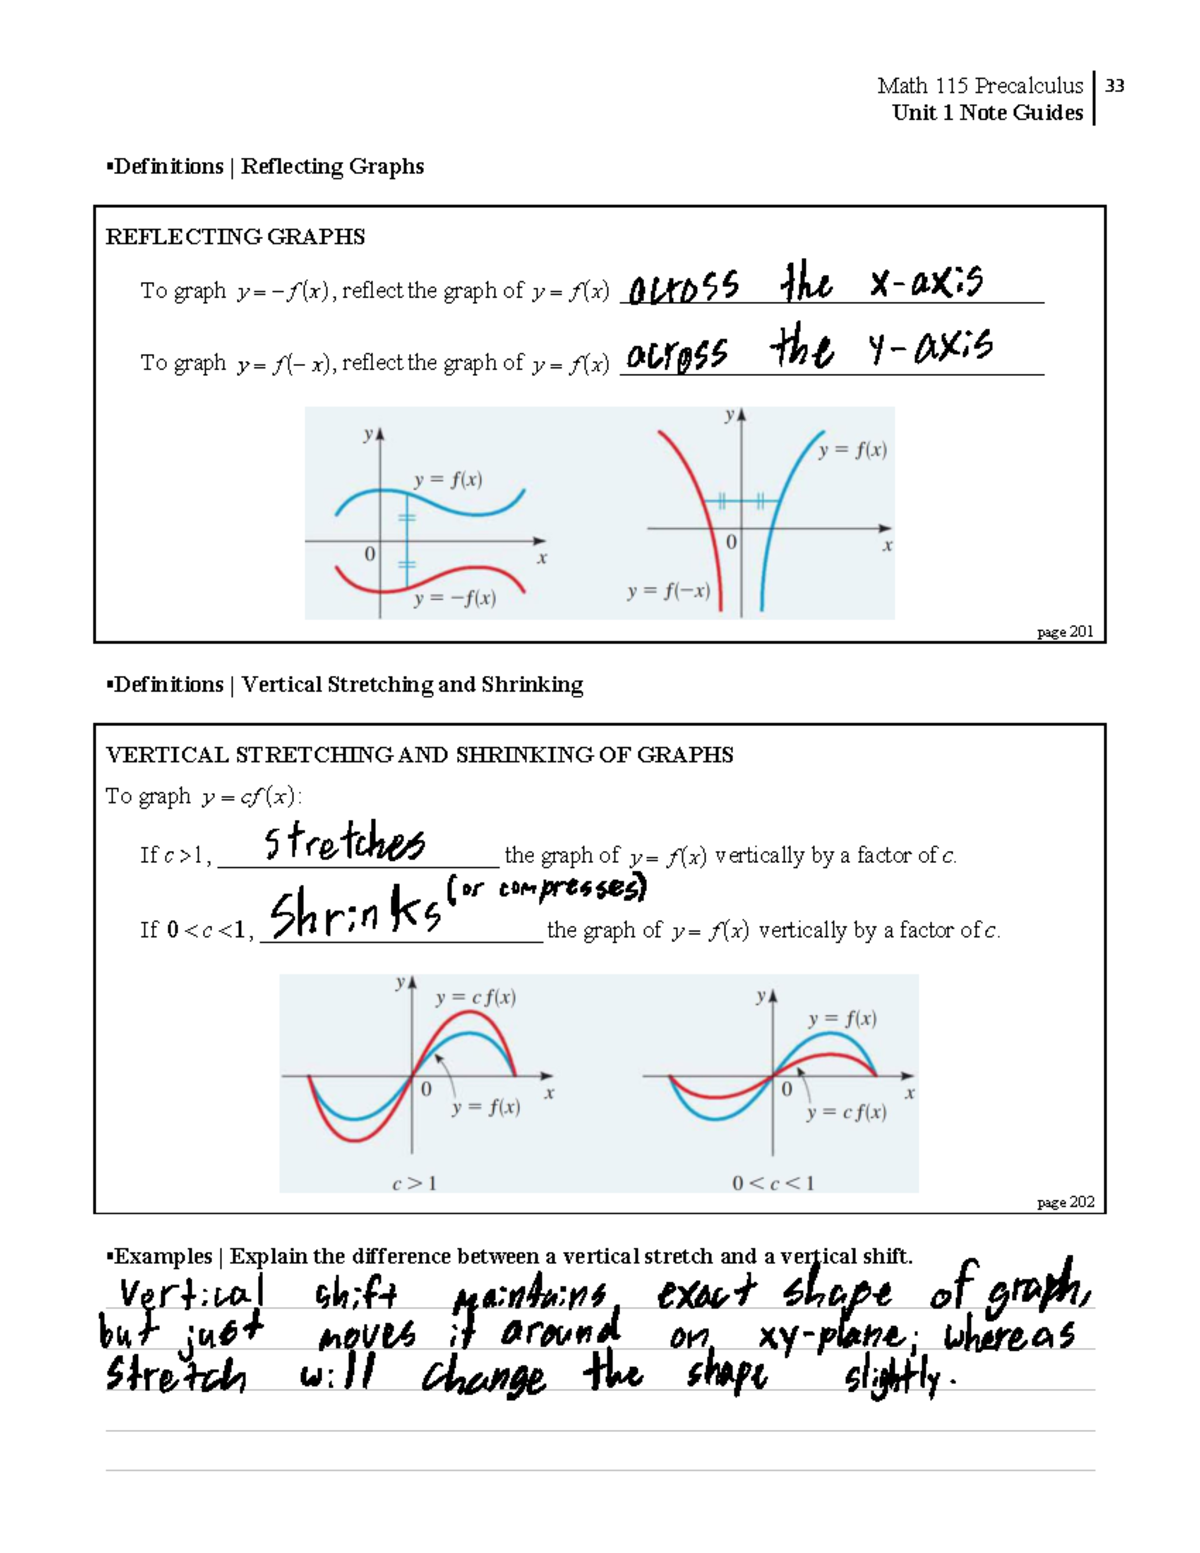 Math 115 Precalculus 33
Unit 1 Note Guides
▪Definitions | Reflecting Graphs
REFLECTING GRAPHS
To graph y = − f(x), reflect the graph of y = f(x) across the x-axis
To graph y = f(− x), reflect the graph of y = f(x) across the y-axis
y
y = f(x)
0
x
y = −f(x)
y
y = f(x)
0
x
y = f(−x)
page 201
▪Definitions | Vertical Stretching and Shrinking
VERTICAL STRETCHING AND SHRINKING OF GRAPHS
To graph y = cf(x):
If c >1, stretches the graph of y = f(x) vertically by a factor of c.
If 0 < c <1, Shrinks (or compresses) the graph of y = f(x) vertically by a factor of c.
y
y = c f(x)
0
x
y = f(x)
c > 1
y
y = f(x)
0
x
y = c f(x)
0 < c < 1
page 202
▪Examples | Explain the difference between a vertical stretch and a vertical shift.
Vertical shift maintains exact shape of graph,
but just moves it around on xy-plane; whereas
stretch will change the shape slightly.